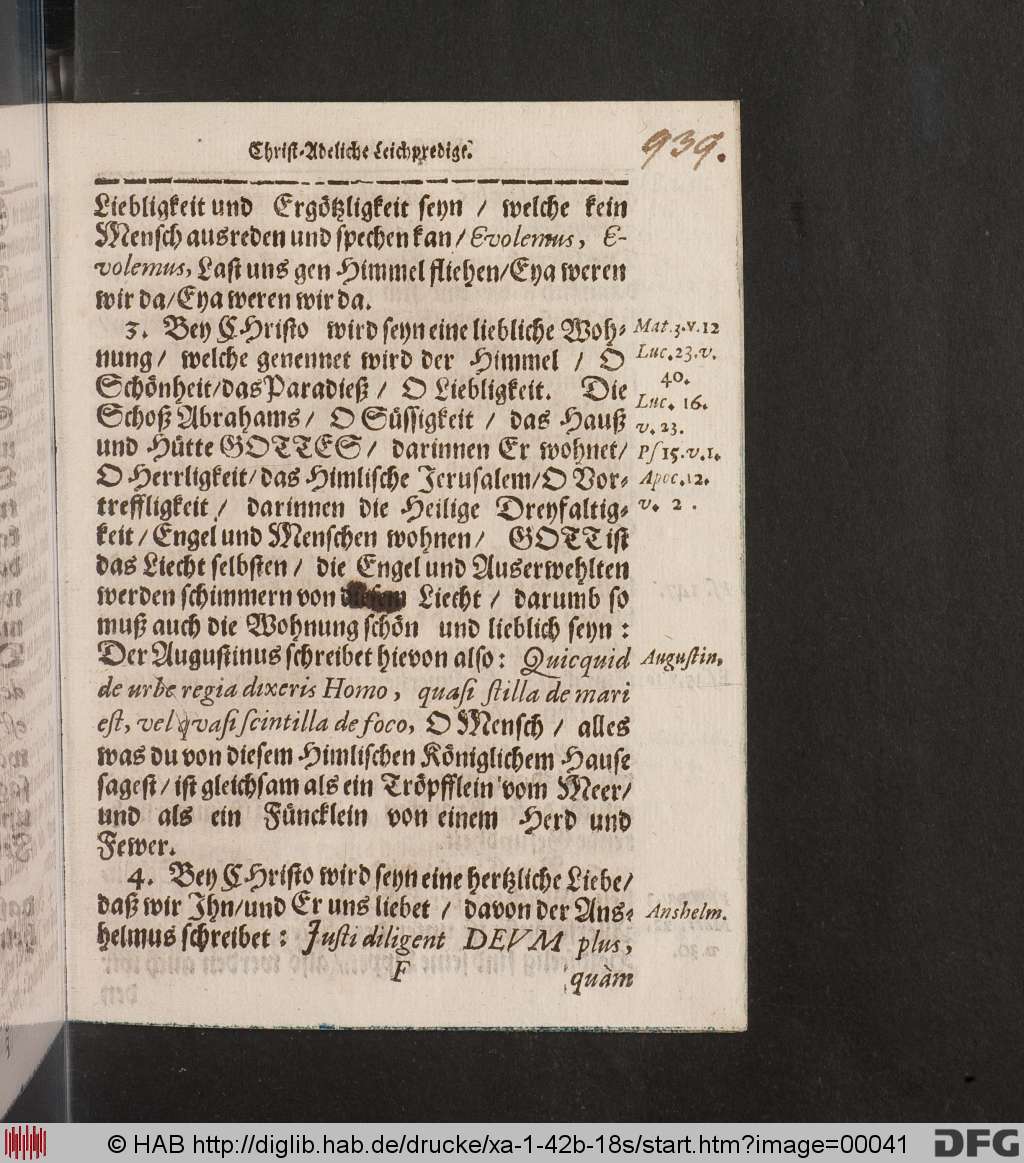 Christ-Adeliche Leichpredigt.
939.
Liebligkeit und Ergötzligkeit seyn / welche kein
Mensch ausreden und spechen kan / Evolemus, E-
volemus, Last uns gen Himmel fliehen/Eya weren
wir da/Eya weren wir da.
3. Bey CHristo wird seyn eine liebliche Woh-
nung / welche genennet wird der Himmel / O
Schönheit/das Paradieß / O Liebligkeit. Die
Schoß Abrahams / O Süssigkeit / das Hauß
und Hütte GOTTES / darinnen Er wohnet/
O Herrligkeit/das Himlische Jerusalem/O Vor-
treffligkeit / darinnen die Heilige Dreyfaltig-
keit / Engel und Menschen wohnen / GOTT ist
das Liecht selbsten / die Engel und Auserwehlten
werden schimmern von Liecht / darumb so
muß auch die Wohnung schön und lieblich seyn :
Der Augustinus schreibet hievon also : Quicquid
de urbe regia dixeris Homo, quasi stilla de mari
est, vel qvasi scintilla de foco, O Mensch / alles
was du von diesem Himlischen Königlichem Hause
sagest / ist gleichsam als ein Tröpfflein vom Meer/
und als ein Füncklein von einem Herd und
Fewer.
4. Bey CHristo wird seyn eine hertzliche Liebe/
daß wir Ihn/und Er uns liebet / davon der Ans-
helmus schreibet : Justi diligent DEVM plus,
F
quàm
Mat.3.v.12
Luc.23.v.
40.
Luc. 16.
v. 23.
Ps 15.v.1.
Apoc.12.
v. 2 .
Augustin.
Anshelm.
© HAB http://diglib.hab.de/drucke/xa-1-42b-18s/start.htm?image=00041
DFG